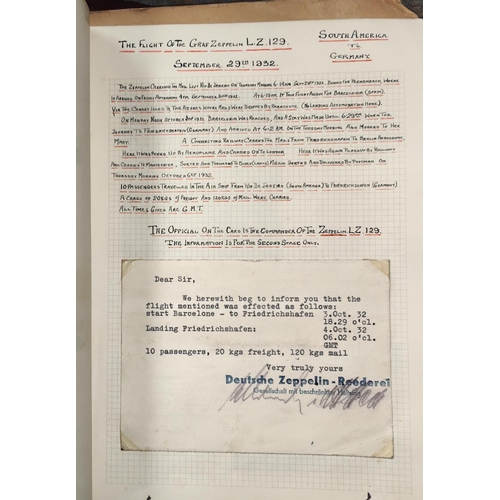 The Flight Of The Graf Zeppelin L.Z. 129.
September 29th 1932.
South America
To
Germany.
The Zeppelin Carrying The Mail Left Rio De Janeiro On Thursday Morning 6-14 A.M. Sept 29th 1932. Bound For
In Africa On Friday Afternoon 4 P.M. September 30th 1932. At 6-10 P.M. It Took Flight Again For Barcelonia (Spain).
Via The Canary Isles In The Azores Where Mails Were Dropped By Parachute (No Landing Accomodation Here).
On Monday Noon October 3rd 1932. Barcelonia Was Reached, And A Stay Was Made Until 6-29 P.M. When The
Journey To Friedrichshafen (Germany) And Arrived At 6-2 A.M. On The Tuesday Morning And Moored To Her
Mast. A Connecting Railway Carried The Mails From Friedrichshafen To Berlin
Here It Was Picked Up By Aeroplane And Carried On To London. Here It Was Again Picked Up By Railway
And Carried To Manchester, Sorted And Delivered By Postman On
Thursday Morning October 6th 1932.
10 Passengers Travelled In The Air Ship From Rio De Janeira (South America) To Friedrichshafen (Germany)
A Cargo Of 20 KGS Of Freight And 120 KGS Of Mail Were Carried.
All Times Given Are G.M.T.
The Official On The Card Is The Commander Of The Zeppelin L.Z. 129.
The Information Is For The Second Stage Only.
Dear Sir,
We herewith beg to inform you that the
flight mentioned was effected as follows:
start Barcelone - to Friedrichshafen 3.Oct. 32
18.29 o'cl.
Landing Friedrichshafen: 4.Oct. 32
06.02 o'cl.
GMT
10 passengers, 20 kgs freight, 120 kgs mail
Very truly yours
Deutsche Zeppelin-Reederei
Gesellschaft mit beschränkter Haftung